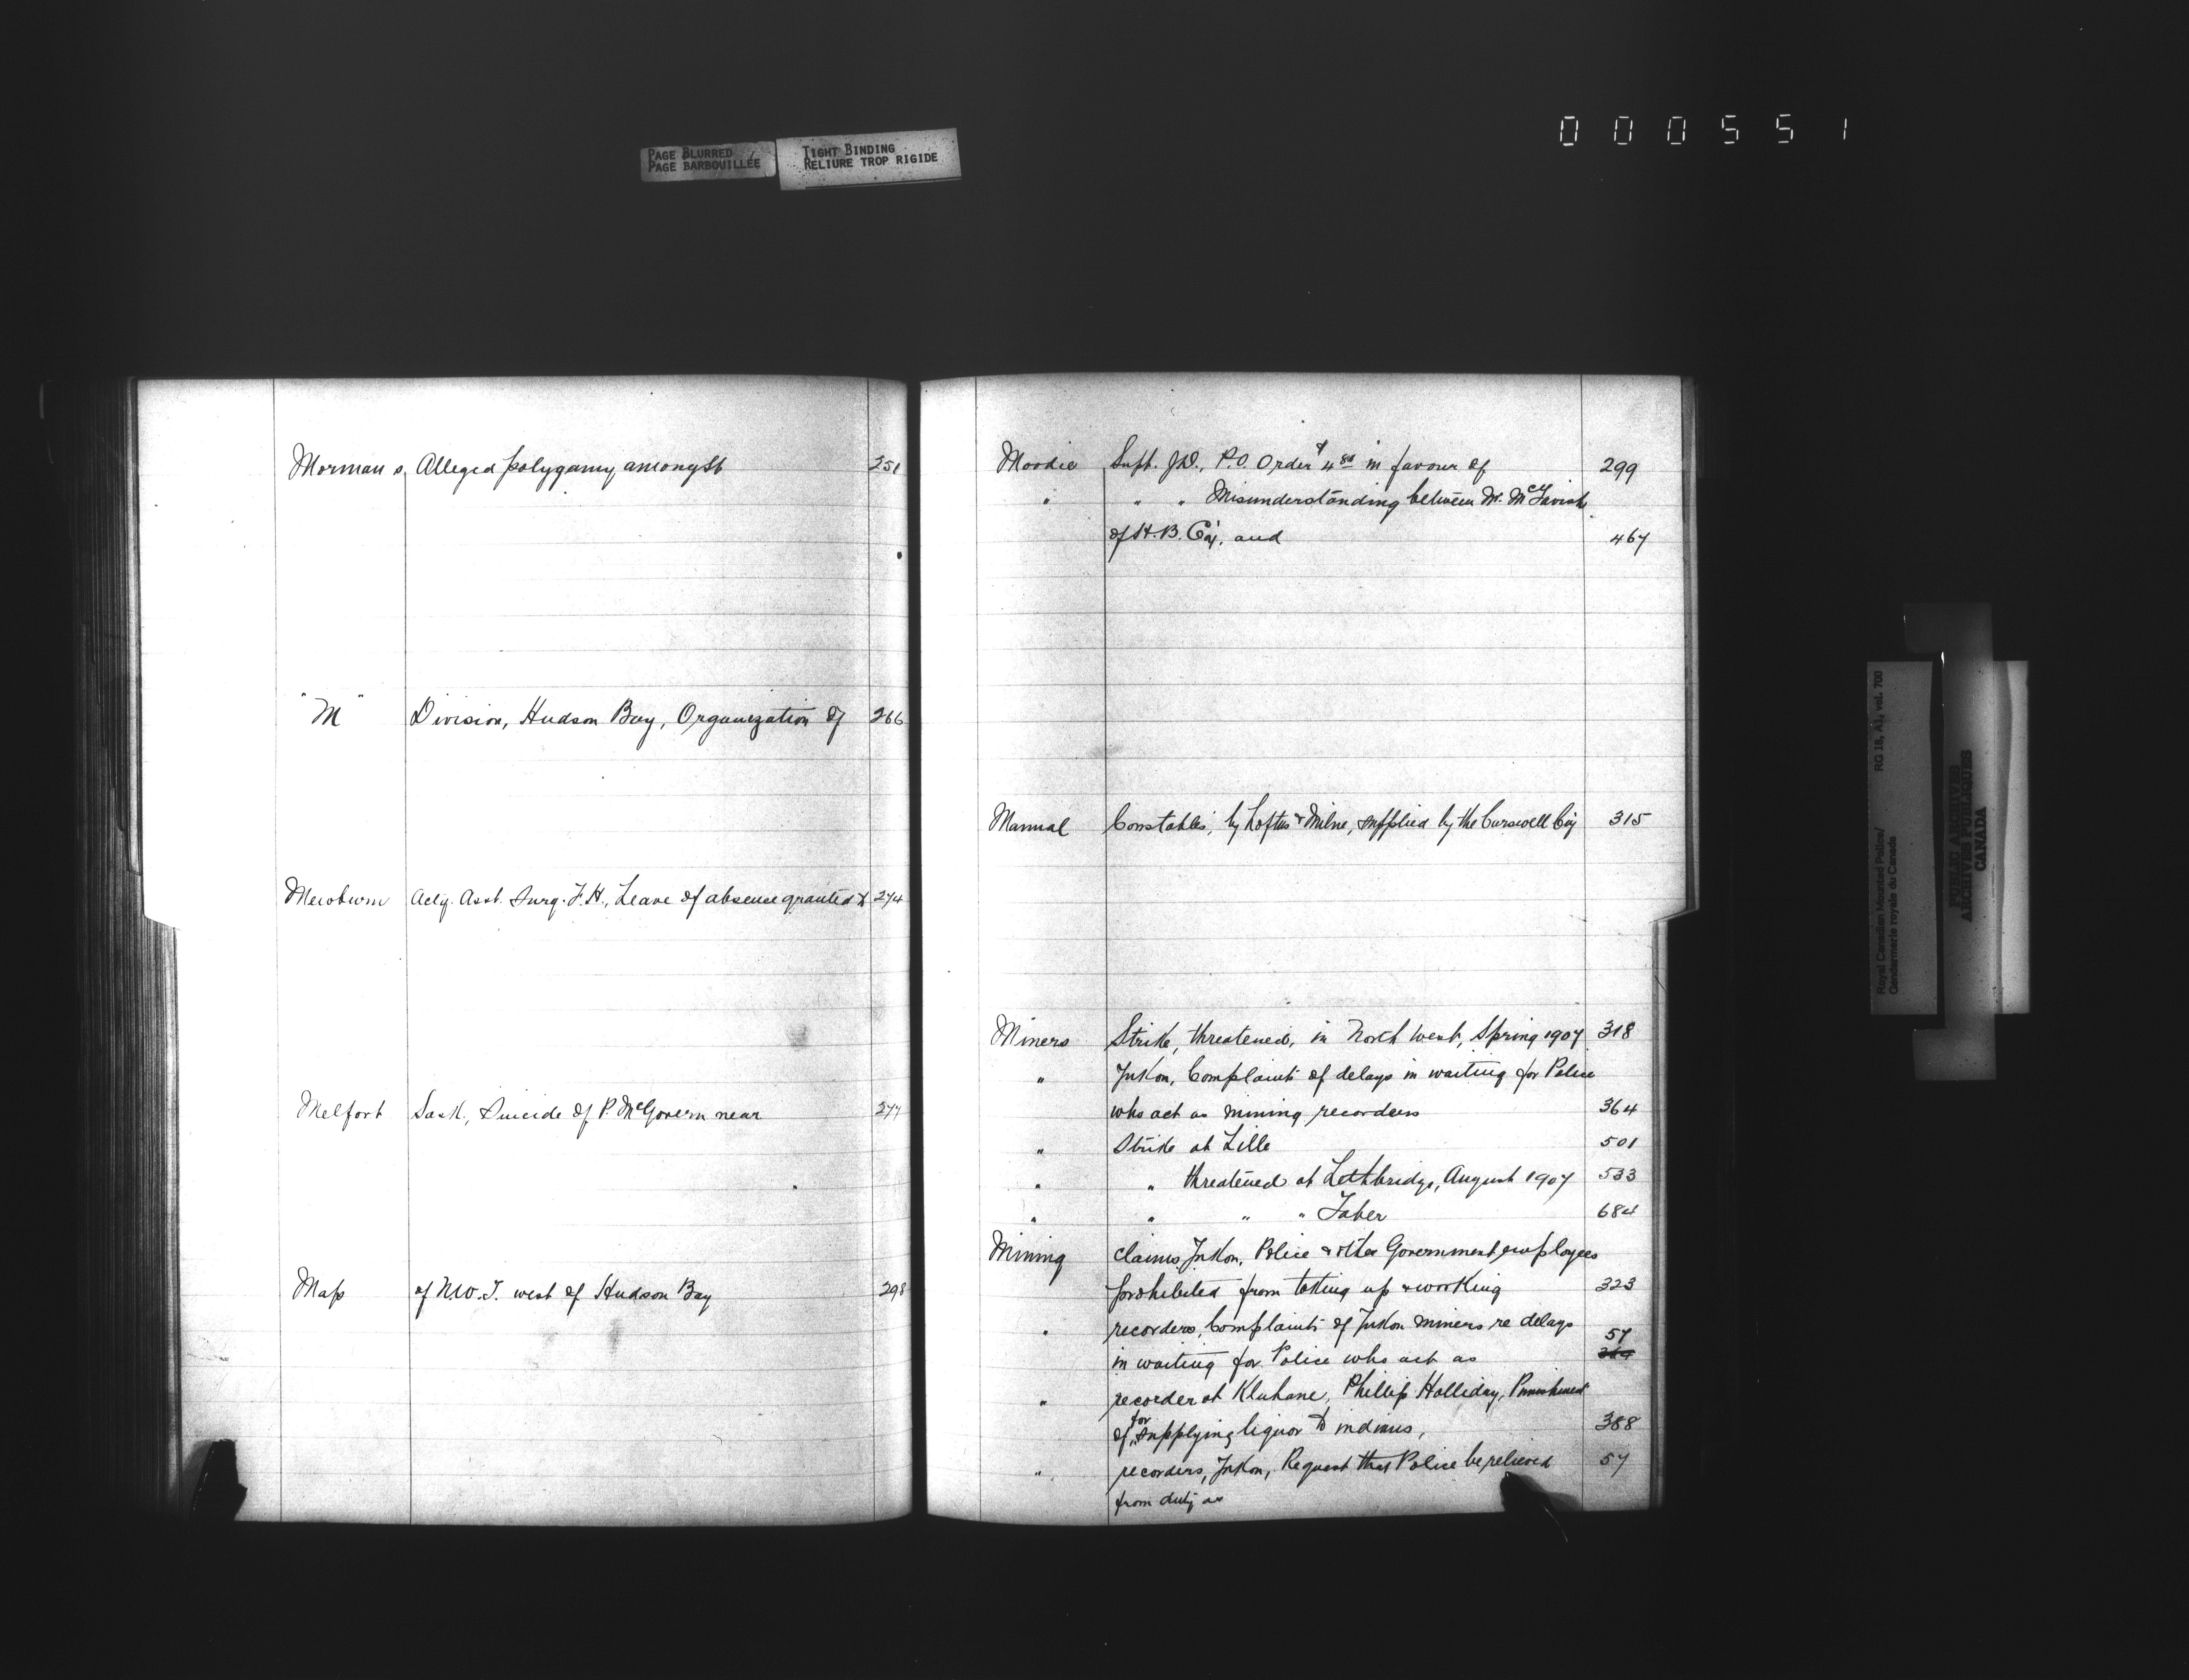 PAGE BLURRED
PAGE BARBOUILLÉE
TIGHT BINDING
RELIURE TROP RIGIDE
000551
Mormans, Alleged polygamy amongst 251
"M" Division, Hudson Bay, Organization of 266
Mewburn Actg. Asst. Surg. F.H., Leave of absence granted to 274
Melfort Sask, Suicide of P. McGovern near 277
Map of N.W.T. west of Hudson Bay 298
Moodie Supt. J.D., P.O. Order $4 in favour of 299
" " " Misunderstanding between Mr. McTavish
of H.B. Coy. and 467
Manual Constables', by Loftus & Milne, supplied by the Carswell Coy 315
Miners Strike, threatened, in North West, Spring 1907 318
" Yukon, Complaints of delays in waiting for Police
who act as mining recorders 364
" Strike at Lille 501
" " threatened at Lethbridge, August 1907 533
" " " " Taber 684
Mining claims, Yukon, Police & other Government employees
prohibited from taking up & working 323
" recorders, Complaints of Yukon miners re delays
in waiting for Police who act as 57 364
" recorder at Kluhane, Phillip Holliday, Punishment
of for supplying liquor to indians, 388
" recorders, Yukon, Request that Police be relieved 57
from duty as
Royal Canadian Mounted Police/ RG 18, A1, vol. 700
Gendarmerie royale du Canada
PUBLIC ARCHIVES
ARCHIVES PUBLIQUES
CANADA